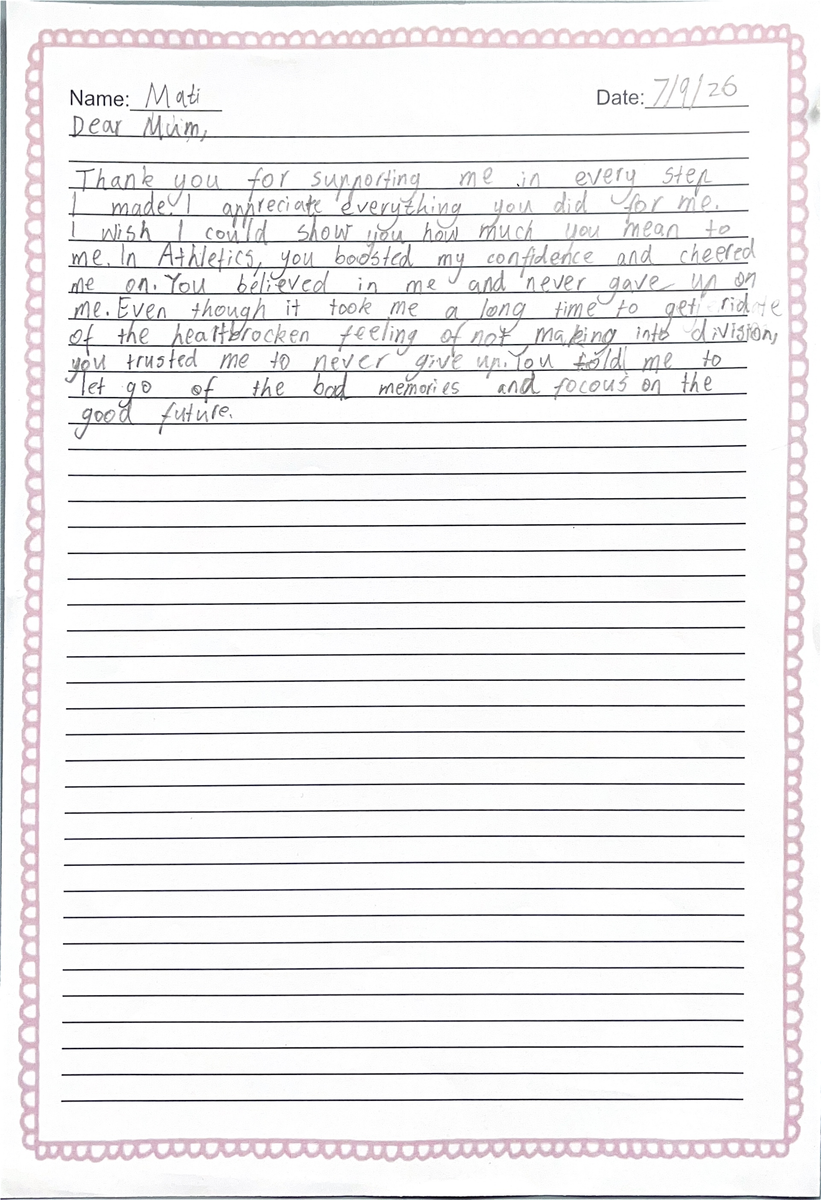 Name: Mati Date: 7/9/26
Dear Mum,
Thank you for supporting me in every step
I made. I appreciate everything you did for me.
I wish I could show you how much you mean to
me. In Athletics, you boosted my confidence and cheered
me on. You believed in me and never gave up on
me. Even though it took me a long time to get rid
of the heartbrocken feeling of not making into division,
you trusted me to never give up. You told me to
let go of the bad memories and focous on the
good future.